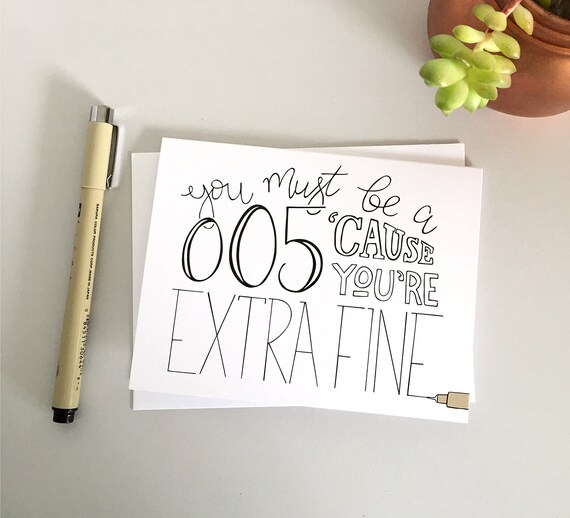 you must be a
005 'CAUSE
YOU'RE
EXTRA FINE